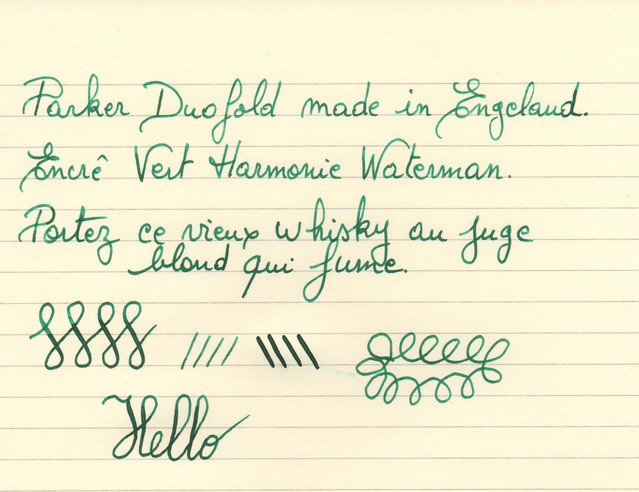 Parker Duofold made in Engeland.
Encrê Vert Harmonie Waterman.
Portez ce vieux whisky au juge
blond qui fume.
Hello